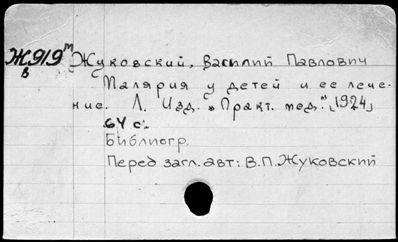 Ж919т Жуковский, Василий Павлович
в
Малярия у детей и ее лече-
ние. Л. Изд. „Практ. мед.", 1924,
64 с.
Библиогр.
Перед загл. авт: В.П.Жуковский